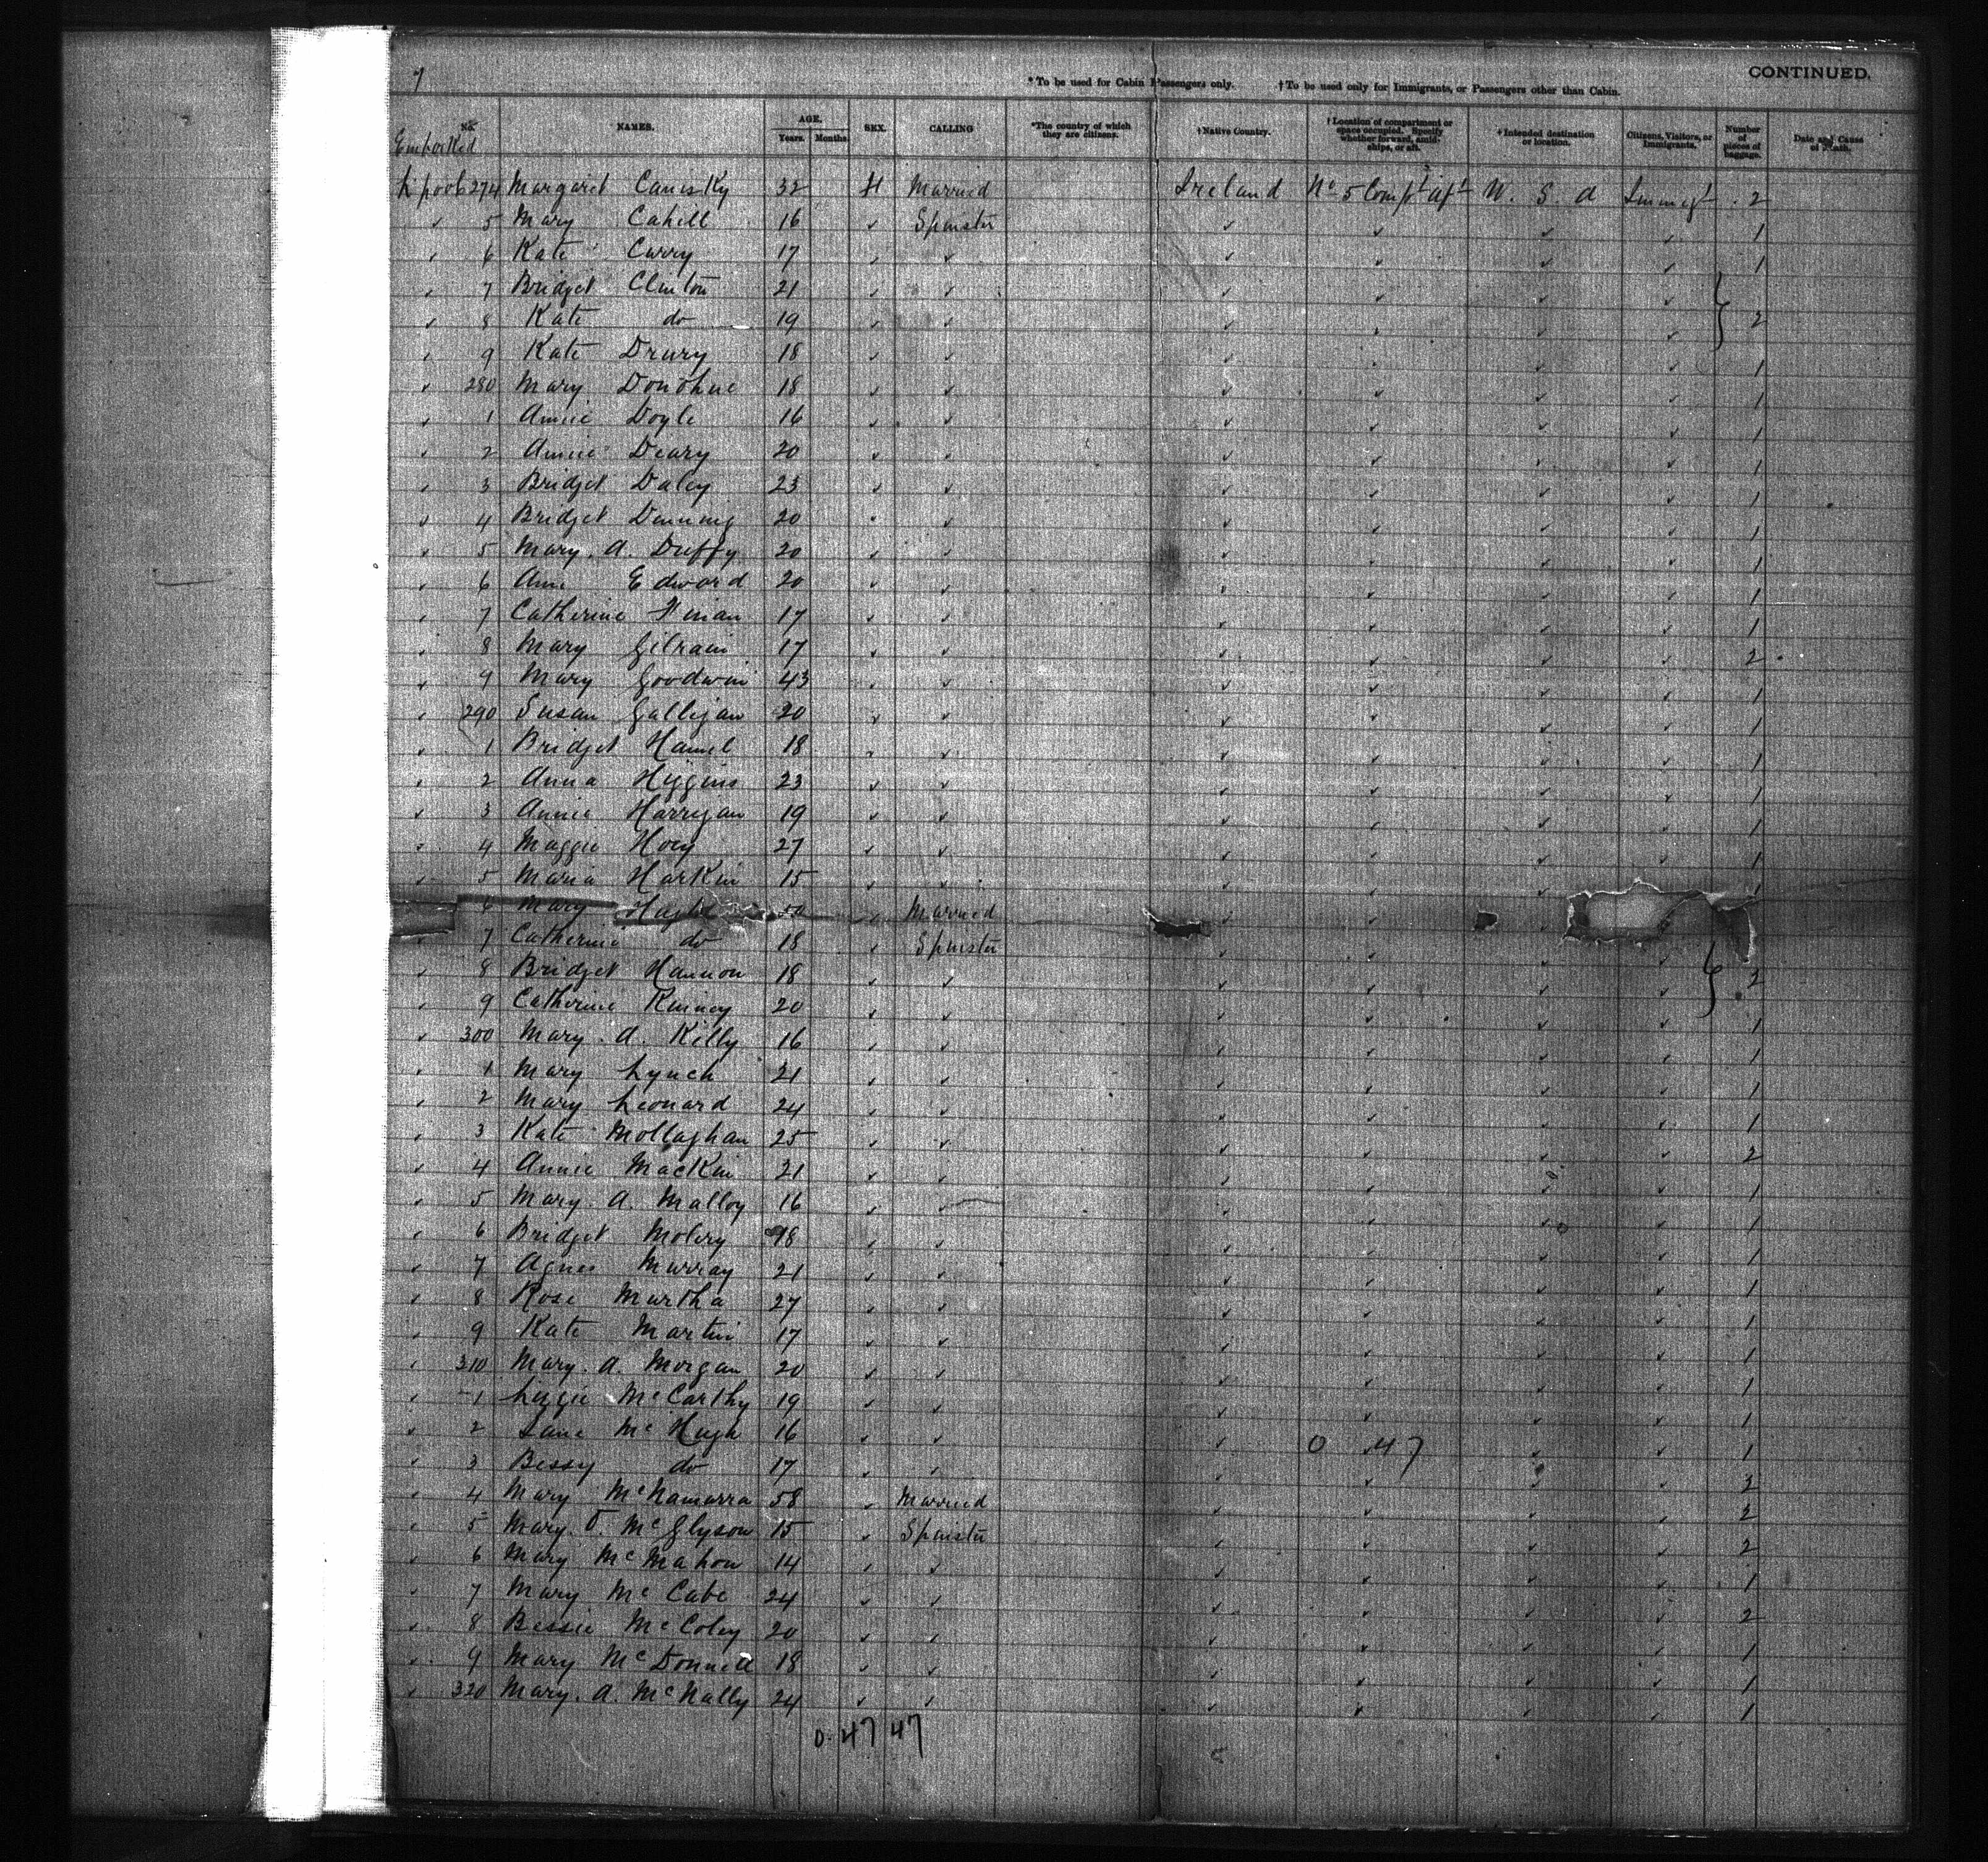 7
* To be used for Cabin Passengers only. † To be used only for Immigrants, or Passengers other than Cabin. CONTINUED.
No. NAMES. AGE. Years. Months SEX. CALLING *The country of which they are citizens. †Native Country. †Location of compartment or space occupied. Specify whether forward, amidships, or aft. †Intended destination or location. Citizens, Visitors, or Immigrants. Number of pieces of baggage. Date and Cause of Death.
Embarked
L'pool 274 Margaret 32 Married Ireland No 5 Compt aft U. S. a Immigt 2
✓ 5 Mary Cahill 16 ✓ Spinster ✓ ✓ ✓ ✓ 1
✓ 6 Kate Curry 17 ✓ ✓ ✓ ✓ ✓ ✓ 1
✓ 7 Bridget Clinton 21 ✓ ✓ ✓ ✓ ✓ ✓
✓ 8 Kate do 19 ✓ ✓ ✓ ✓ ✓ ✓ } 2
✓ 9 Kate Drury 18 ✓ ✓ ✓ ✓ ✓ ✓ 1
✓ 280 Mary Donohue 18 ✓ ✓ ✓ ✓ ✓ ✓ 1
✓ 1 Annie Doyle 16 ✓ ✓ ✓ ✓ ✓ ✓ 1
✓ 2 Annie Deary 20 ✓ ✓ ✓ ✓ ✓ ✓ 1
✓ 3 Bridget Daley 23 ✓ ✓ ✓ ✓ ✓ ✓ 1
✓ 4 Bridget Denning 20 ✓ ✓ ✓ ✓ ✓ ✓ 1
✓ 5 Mary. A. Duffy 20 ✓ ✓ ✓ ✓ ✓ ✓ 1
✓ 6 Ann Edward 20 ✓ ✓ ✓ ✓ ✓ ✓ 1
✓ 7 Catherine Finan 17 ✓ ✓ ✓ ✓ ✓ ✓ 1
✓ 8 Mary Gilrain 17 ✓ ✓ ✓ ✓ ✓ ✓ 2
✓ 9 Mary Goodwin 43 ✓ ✓ ✓ ✓ ✓ ✓ 1
✓ 290 Susan Galligan 20 ✓ ✓ ✓ ✓ ✓ ✓ 1
✓ 1 Bridget 18 ✓ ✓ ✓ ✓ ✓ ✓ 1
✓ 2 Anna Higgins 23 ✓ ✓ ✓ ✓ ✓ ✓ 1
✓ 3 Annie Harrigan 19 ✓ ✓ ✓ ✓ ✓ ✓ 1
✓ 4 Maggie Hoey 27 ✓ ✓ ✓ ✓ ✓ ✓ 1
✓ 5 Maria Harkin 15 ✓ ✓ ✓ ✓ ✓ ✓ 1
6 Mary 50 ✓ Married ✓ ✓ ✓
✓ 7 Catherine do 18 ✓ Spinster ✓ ✓ ✓ ✓
✓ 8 Bridget Hannon 18 ✓ ✓ ✓ ✓ ✓ ✓ }
✓ 9 Catherine Kinney 20 ✓ ✓ ✓ ✓ ✓ ✓ 1
✓ 300 Mary. A. Killy 16 ✓ ✓ ✓ ✓ ✓ ✓ 1
✓ 1 Mary Lynch 21 ✓ ✓ ✓ ✓ ✓ ✓ 1
✓ 2 Mary Leonard 24 ✓ ✓ ✓ ✓ ✓ ✓ 1
✓ 3 Kate Mollaghan 25 ✓ ✓ ✓ ✓ ✓ ✓ 2
✓ 4 Annie Mackin 21 ✓ ✓ ✓ ✓ ✓ ✓ 1
✓ 5 Mary. A. Malloy 16 ✓ ✓ ✓ ✓ ✓ ✓ 1
✓ 6 Bridget 18 ✓ ✓ ✓ ✓ ✓ ✓ 1
✓ 7 Agnes Murray 21 ✓ ✓ ✓ ✓ ✓ ✓ 1
✓ 8 Rose Murtha 27 ✓ ✓ ✓ ✓ ✓ ✓ 1
✓ 9 Kate Martin 17 ✓ ✓ ✓ ✓ ✓ ✓ 1
✓ 310 Mary. A. Morgan 20 ✓ ✓ ✓ ✓ ✓ ✓ 1
✓ 1 Lizzie McCarthy 19 ✓ ✓ ✓ ✓ ✓ ✓ 1
✓ 2 Jane McHugh 16 ✓ ✓ ✓ 0 47 ✓ ✓ 1
✓ 3 Bessy do 17 ✓ ✓ ✓ ✓ ✓ ✓ 2
✓ 4 Mary McNamarra 58 ✓ Married ✓ ✓ ✓ ✓ 2
✓ 5 Mary. McGlyson 15 ✓ Spinster ✓ ✓ ✓ ✓ 2
✓ 6 Mary McMahon 14 ✓ ✓ ✓ ✓ ✓ ✓ 1
✓ 7 Mary McCabe 24 ✓ ✓ ✓ ✓ ✓ ✓ 2
✓ 8 Bessie McColey 20 ✓ ✓ ✓ ✓ ✓ ✓ 1
✓ 9 Mary McDonnell 18 ✓ ✓ ✓ ✓ ✓ ✓ 1
✓ 320 Mary. A. McNally 24 ✓ ✓ ✓ ✓ ✓ ✓ 1
0. 47 47